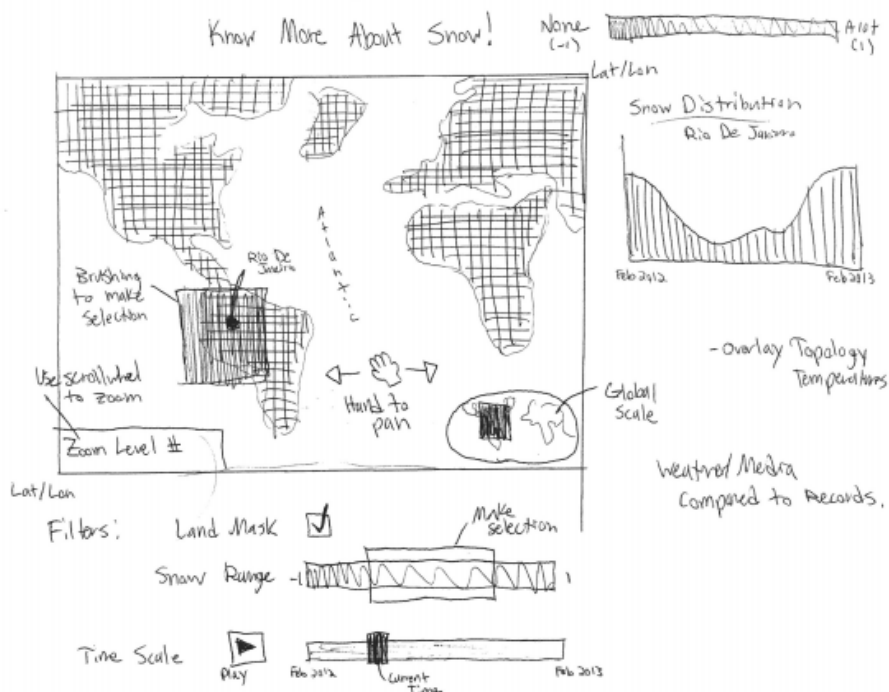 Know More About Snow!
None
(-1)
A lot
(1)
Lat/Lon
Snow Distribution
Rio De Janiero
Feb 2012
Feb 2013
Atlantic
Rio De
Janeiro
Brushing
to make
selection
Use scrollwheel
to zoom
Zoom Level #
Hand to
pan
Global
Scale
- Overlay Topology
Temperatures
Weather/Media
Compared to Records.
Lat/Lon
Filters:
Land Mask
Make
selection
Snow Range
-1
1
Time Scale
Play
Feb 2012
Current
Time
Feb 2013